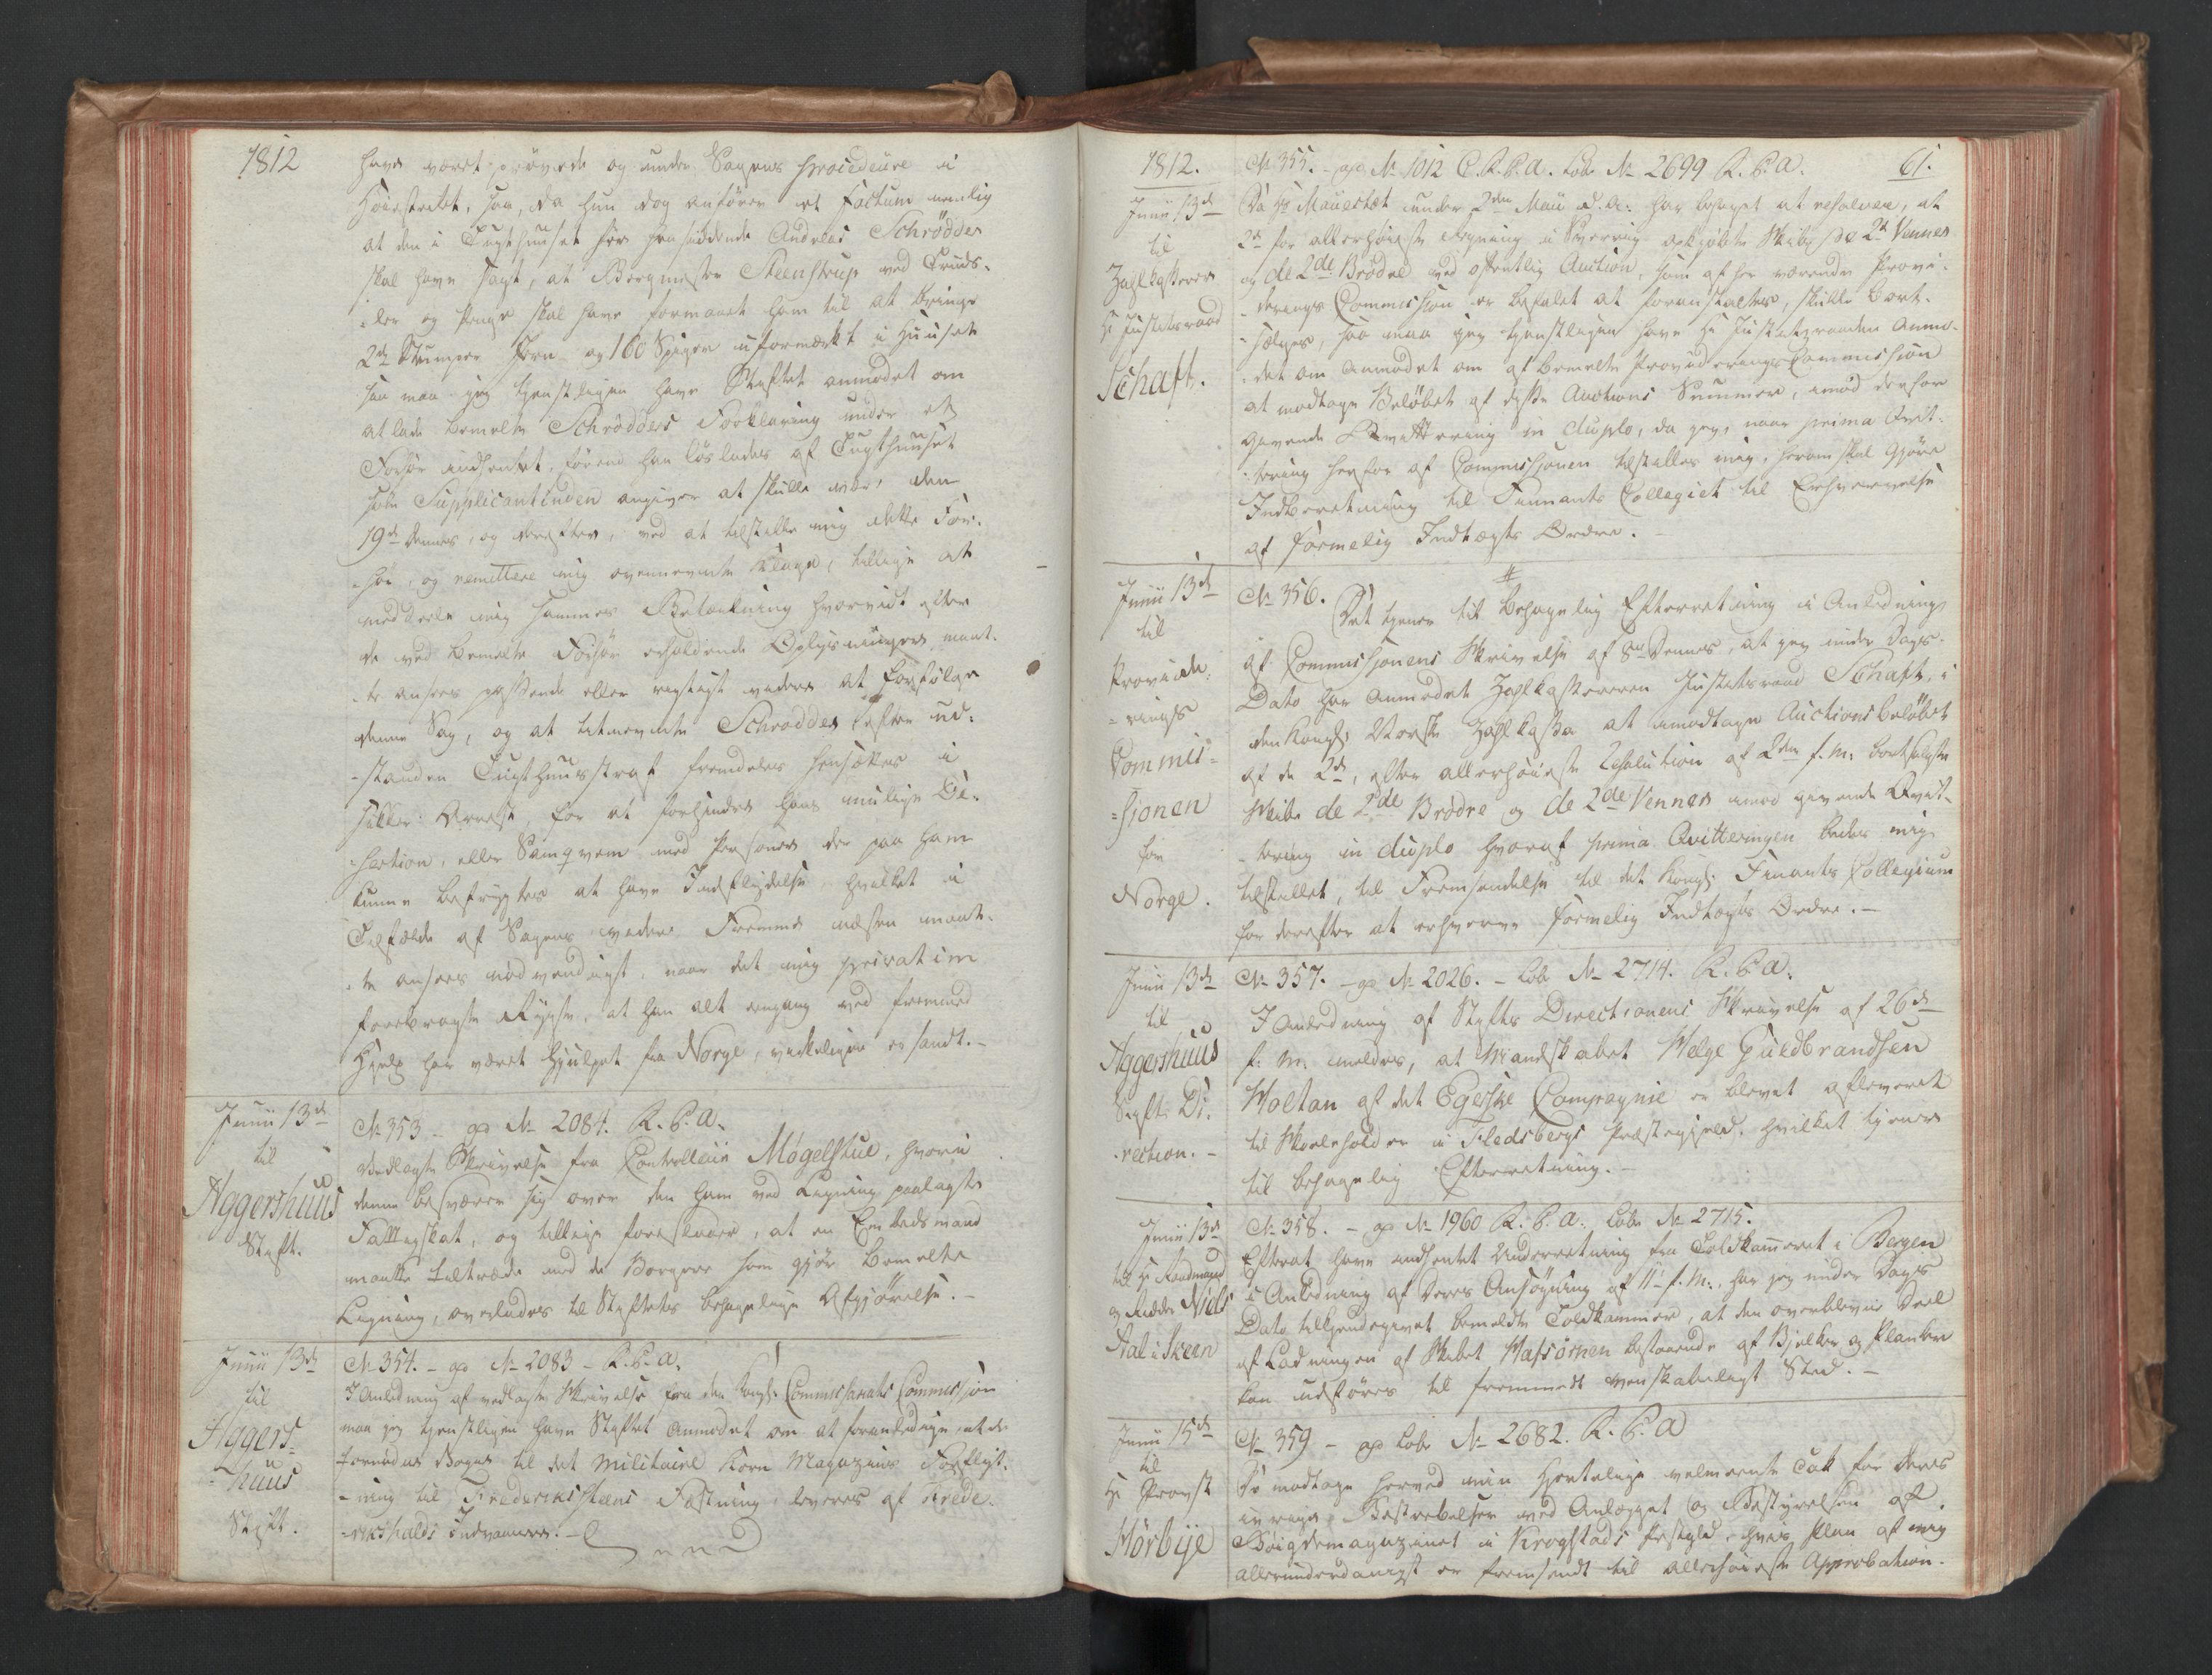 1812
have været prøvede og under Sagens Procedeure i
Høiesteret, saa, da hun dog anfører et Factum nemlig
at den i Tugthuuset for hensiddende Andreas Schrødder
skal have sagt, at Bergmester Steenstrup ved Trud-
sler og Penge skal have formaaet ham til at bringe
2de Stumper Jern og 160 Spiger uformærkt i Huuset
saa maa jeg tjenstligen have Stiftet anmodet om
at lade bemelte Schrødders Forklaring under et
Forhør indhentet, førend han løslades af Tugthuuset
som Supplicantinden angiver at skulle være den
19de dennes, og derefter, ved at tilstille mig dette For-
hør, og remittere mig ovennevnte Klage, tillige at
meddeele mig sammes Betænkning hvorvidt efter
de ved bemelte Forhør erholdende Oplysninger maat-
te ansees passende eller rigtigt videre at forfølge
denne Sag, og at bemeldte Schrødder efter ud-
standen Tugthuusstraf fremdeles hensættes i
sikker Arrest, for at forhindre hans mulige De-
sertion, eller Samqvem med Personer der paa ham
kunne befrygtes at have Indflydelse, hvilket i
Tilfælde af Sagens videre Fremme næsten maat-
te ansees nødvendigst, naar det mig privatim
forebragte Rygte, at han alt engang ved fremmed
Hjelp har været hjulpet fra Norge, virkeligen er sandt.-
Junii 13de
til
Aggershuus
Stift.
No 353 - gp No 2084. R.C.A.
Vedlagte Skrivelse fra Controlleur Møgelstue, hvori
denne besværer sig over den ham ved Ligning paalagte
Fattigskat, og tillige foreslaaer, at en Embedsmand
maatte tiltræde med de Borgere som gjør bemelte
Ligning, overlades til Stiftets behagelige Afgjørelse.-
Junii 13de
til
Aggers-
-huus
Stift.
No 354. - gp No 2083 - R.C.A.
I Anledning af vedlagte Skrivelse fra den Kongl. Commissariats Commission
maa jeg tjenstligen have Stiftet anmodet om at foranledige at de
fornødne Vogne til det militaire Korn Magazins Forflyt-
-ning til Frederikssteens Fæstning, leveres af Frede-
-rikshalds Indvaanere.-
1812.
61.
Junii 13de
til
Zahlkasserer
Hr Justitsraad
Schaft.
No 355. - gp No 1012 C.R.C.A. Lobe No 2699 R.C.A.
Da Hs Majestæt under 2den Maii d.A. har behaget at resolvere, at
2de for allerhøieste Regning i Sverrig opkjøbte Skibe de 2de Venner
og de 2de Brødre ved offentlig Auction, som af her værende Provi-
derings Commission er befalet at foranstaltes, skulle bort-
sælges, saa maa jeg tjenstligen have Hr Justitsraaden anmo-
det om anmodet om af bemelte Provideringscommission
at modtage Beløbet af disse Auctions Summer, imod derfor
givende Qvittering in duplo, da jeg, naar prima Qvit-
tering herfor af Commissionen tilstilles mig, herom skal gjøre
Indberetning til Finants Collegiet til Erhvervelse
af formelig Indtægts Ordre.-
Junii 13de
til
Provide-
-rings
Commis-
-sionen
for
Norge.
No 356.
Det tjener til behagelig Efterretning i Anledning
af Commissionens Skrivelse af 8de dennes, at jeg under Dags
Dato har anmodet Zahlkassereren Justitsraad Schaft, i
den Kongl. Norske Zahlkasse at modtage Auctionsbeløbet
af de 2de, efter allerhøieste Resolution af 2den f.M. bortsolgte
Skibe de 2de Brødre og de 2de Venner imod givende Qvit-
tering in duplo hvoraf prima Qvitteringen bedes mig
tilstillet, til Fremsendelse til det Kongl. Finants Collegium
for derefter at erhverve formelig Indtægts Ordre.-
Junii 13de
til
Aggershuus
Stifts Di-
-rection.-
No 357. - gp No 2026. - Lobe No 2714. R.C.A.
I Anledning af Stifts Directionens Skrivelse af 26de
f.M. meldes, at Mandskabet Helge Guldbrandsen
Woltan af det Egerske Compagnie er blevet afleveret
til Skoleholder i Fledsbergs Præstegjeld, hvilket tjener
til behagelig Efterretning.-
Junii 13de
til Hr Kandmand
og Ridder Niels
Aal i Skeen
No 358. - gp No 1960 R.C.A. Lobe No 2715.
Efterat have indhentet Underretning fra Toldkammeret i Bergen
i Anledning af Deres Ansøgning af 11te f.M., har jeg under Dags
Dato tilkjendegivet bemeldte Toldkammer, at den overblevne Deel
af Ladningen af Skibet Hafsørnen bestaaende af Bjelker og Planker
kan udføres til fremmedt venskabeligt Sted.-
Junii 15de
til
Hr Provst
Hörbÿe
No 359 - gp Lobe No 2682. R.C.A
De modtage herved min hjertelige velmeente Tak for deres
ivrige Bestræbelser ved Anlægget og Bestyrelsen af
Bøigdemagazinet i Krogstads Præstgjeld, hvis Plan af mig
allerunderdanigst er fremsendt til allerhøieste Approbation.